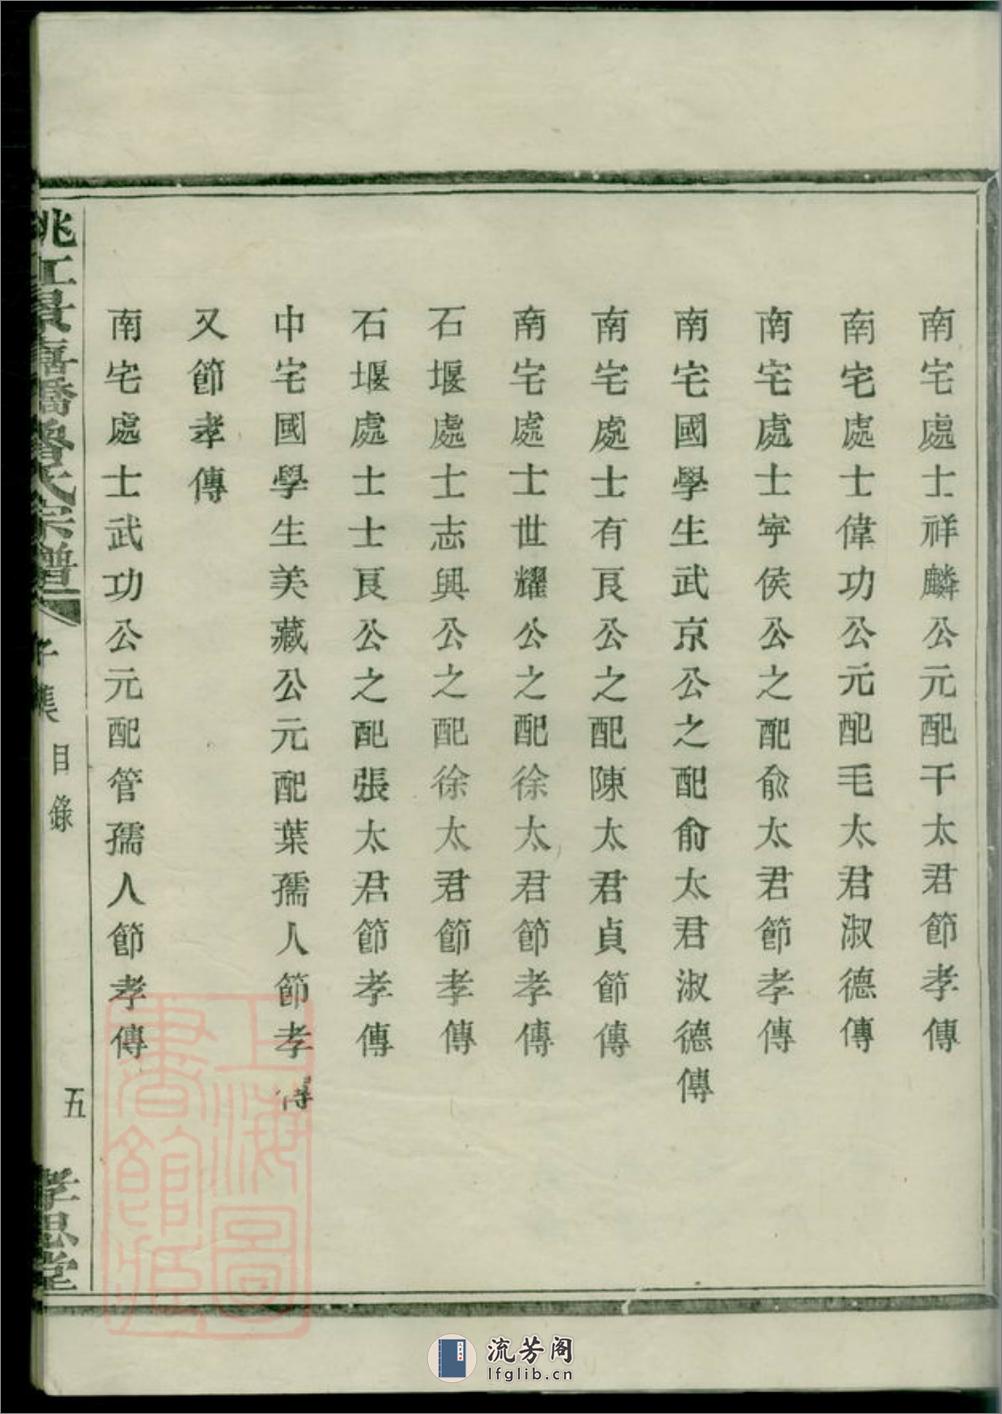 南宅處士祥麟公元配干太君節孝傳
南宅處士偉功公元配毛太君淑德傳
南宅處士寧侯公之配俞太君節孝傳
南宅國學生武京公之配俞太君淑德傳
南宅處士有良公之配陳太君貞節傳
南宅處士世耀公之配徐太君節孝傳
石堰處士志興公之配徐太君節孝傳
石堰處士士良公之配張太君節孝傳
中宅國學生美藏公元配葉孺人節孝傳
又節孝傳
南宅處士武功公元配管孺人節孝傳
姚江景嘉橋魯氏宗譜
子集
目錄
五
孝思堂
上海圖書館藏
流芳阁
lfglib.cn